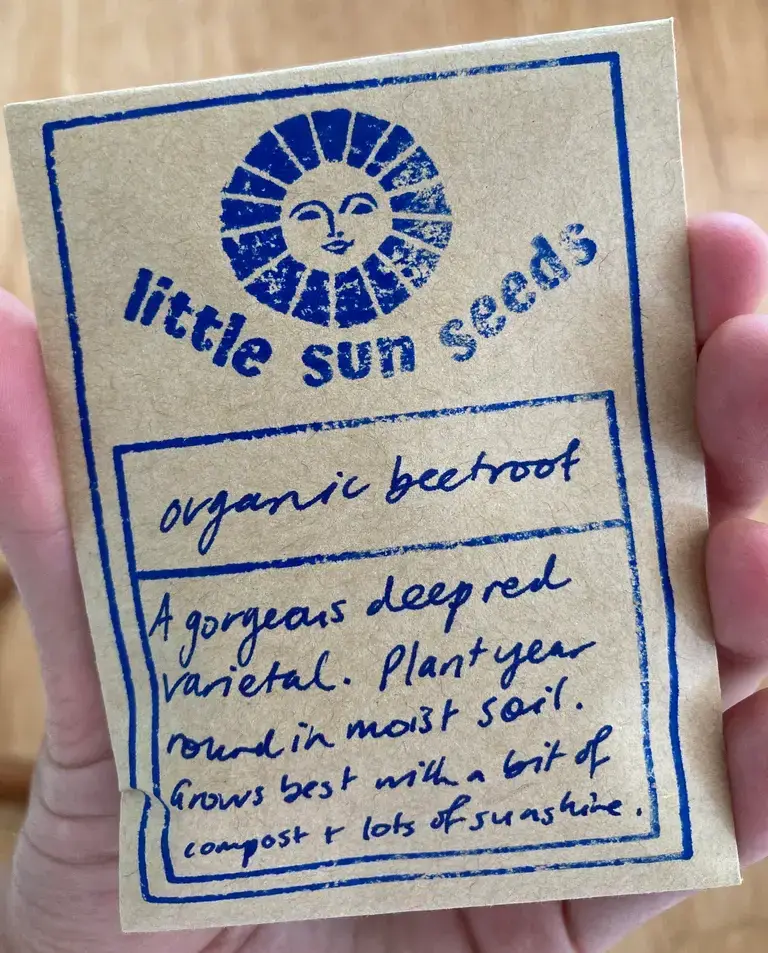 little sun seeds
organic beetroot
A gorgeous deep red
varietal. Plant year
round in moist soil.
Grows best with a bit of
compost + lots of sunshine.